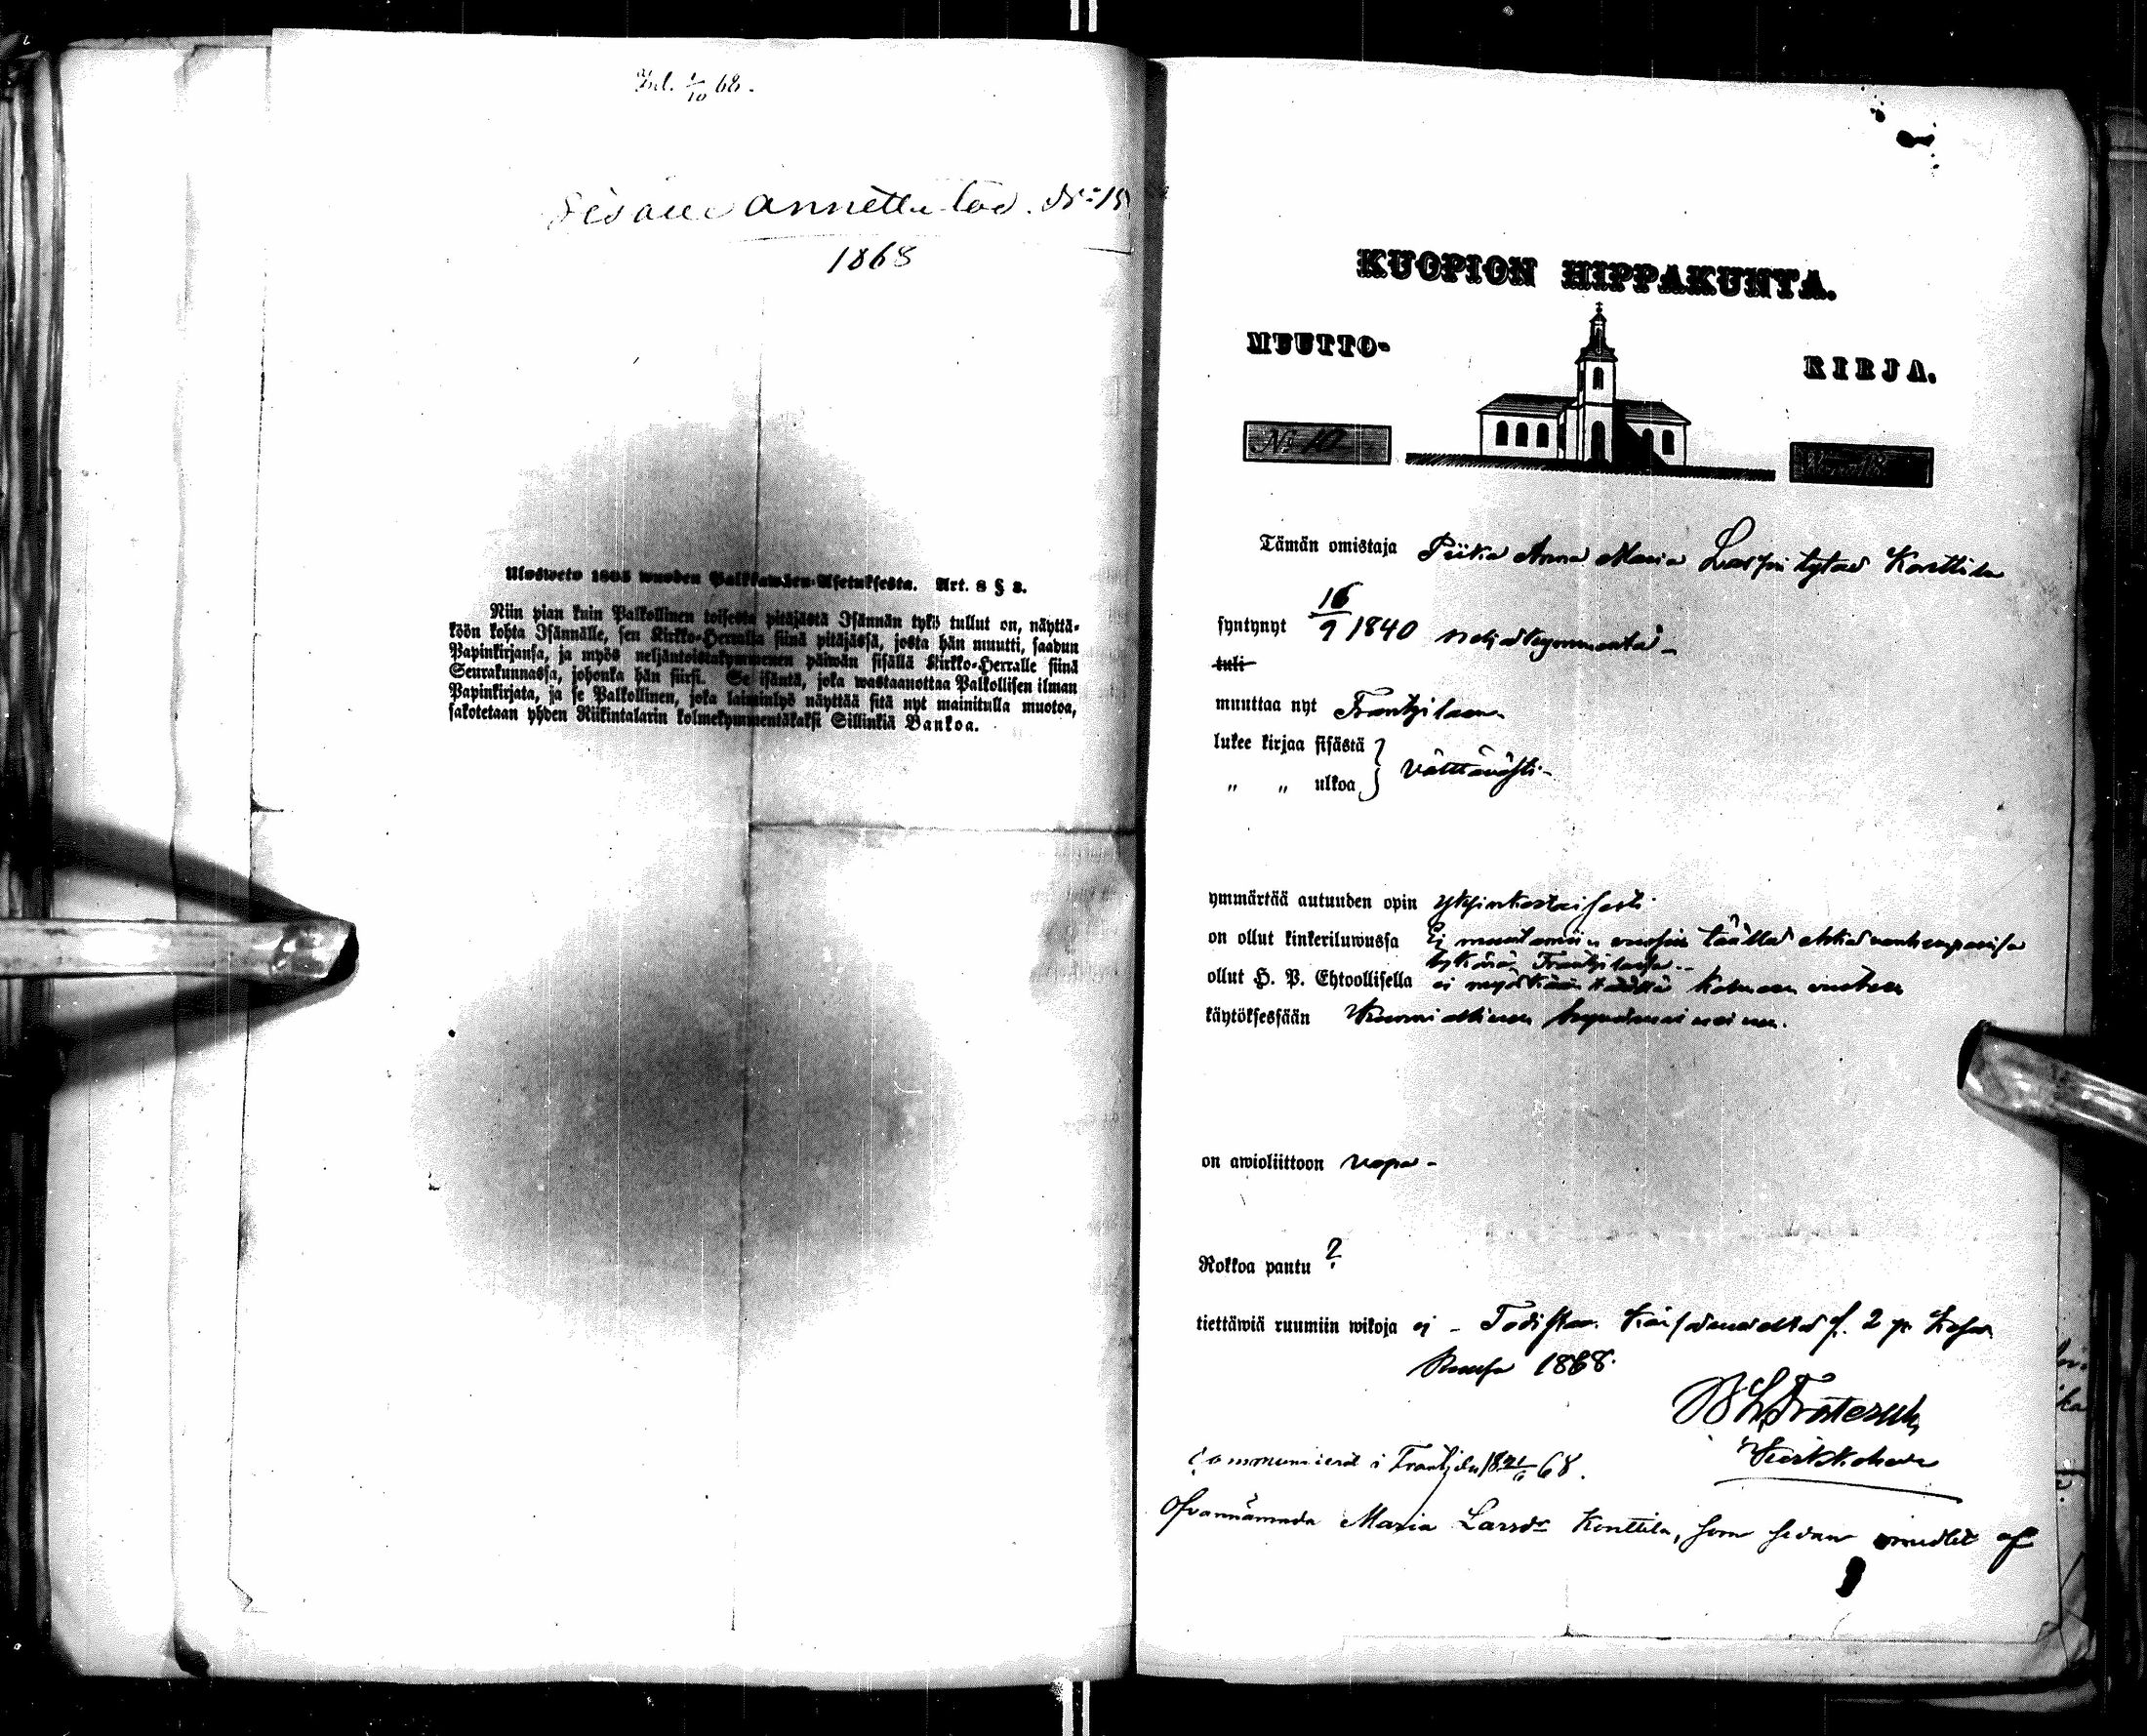 Inl. 1/10 68.
Sisään annettu tod. No 15
1868
Ulosweto 1805 wuoden Palkkawäen-Asetuksesta. Art. 8 § 2.
Niin pian kuin Palkollinen toisesta pitäjästä Isännän tykö tullut on, näyttä-
köön kohta Isännälle, sen Kirkko-Herralta siinä pitäjässä, josta hän muutti, saadun
Papinkirjansa, ja myös neljäntoistakymmenen päiwän sisällä Kirkko-Herralle siinä
Seurakunnassa, johonka hän siirsi. Se isäntä, joka wastaanottaa Palkollisen ilman
Papinkirjata, ja se Palkollinen, joka laiminlyö näyttää sitä nyt mainitulla muotoa,
sakotetaan yhden Riikintalarin kolmekymmentäkaksi Sillinkiä Bankoa.
KUOPION HIPPAKUNTA.
MUUTTO- KIRJA.
No 10
Tämän omistaja Piika Anna Maria Lassin tytär Konttila
syntynyt 16/9 1840 neljäkymmentä -
tuli
muuttaa nyt Frantsilaan
lukee kirjaa sisästä
" " ulkoa } Välttävästi -
ymmärtää autuuden opin yksinkertaisesti
on ollut kinkeriluwussa Ej muutamiin vuosiin täällä ehkä vanhempainsa
tykönä Frantsilassa -
ollut H. P. Ehtoollisella ei myöskään täällä kolmeen vuoteen
käytöksessään
on awioliittoon vapa -
Rokkoa pantu ?
tiettäwiä ruumiin wikoja ej - Todistaa Kärsämäellä s. 2 p. Kesä
Kuusa 1868.
Kirkkoherra
Communicerat i Frantsila 68.
Ofvannämnda Maria Larsdr Konttila, som sedan af